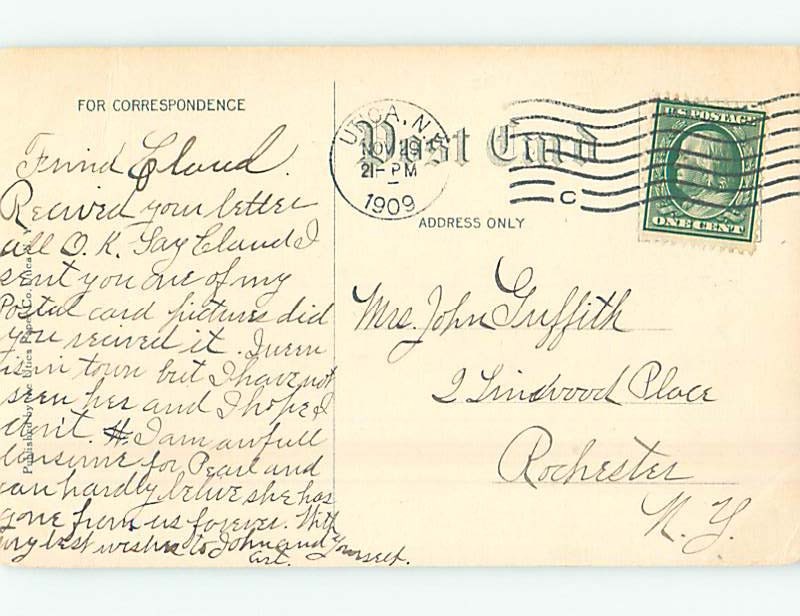 FOR CORRESPONDENCE
Friend Claud.
Recived your letter
all O. K. Say Claud I
sent you one of my
Postal card pictures did
you recived it.
is in town but I have not
seen her and I hope I
don't. I am awfull
lonsome for Pearl and
can hardly belive she has
gone from us forever. With
very best wishes to John and Yourself.
Art.
Published by the Utica Paper Co. Utica
UTICA, N.Y.
NOV 19
21-PM
1909
C
Post Card
ADDRESS ONLY
U.S. POSTAGE
ONE CENT
Mrs. John Griffith
2 Lindwood Place
Rochester
N. Y.